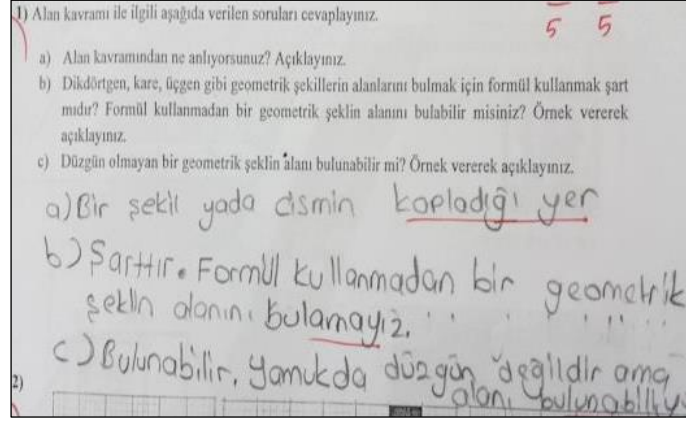 1) Alan kavramı ile ilgili aşağıda verilen soruları cevaplayınız.
5 5
a) Alan kavramından ne anlıyorsunuz? Açıklayınız.
b) Dikdörtgen, kare, üçgen gibi geometrik şekillerin alanlarını bulmak için formül kullanmak şart
mıdır? Formül kullanmadan bir geometrik şeklin alanını bulabilir misiniz? Örnek vererek
açıklayınız.
c) Düzgün olmayan bir geometrik şeklin alanı bulunabilir mi? Örnek vererek açıklayınız.
a) Bir şekil yada cismin kapladığı yer
b) Şarttır. Formül kullanmadan bir geometrik
şeklin alanını bulamayız.
c) Bulunabilir. Yamukda düzgün değildir ama
alanı bulunabiliy
2)